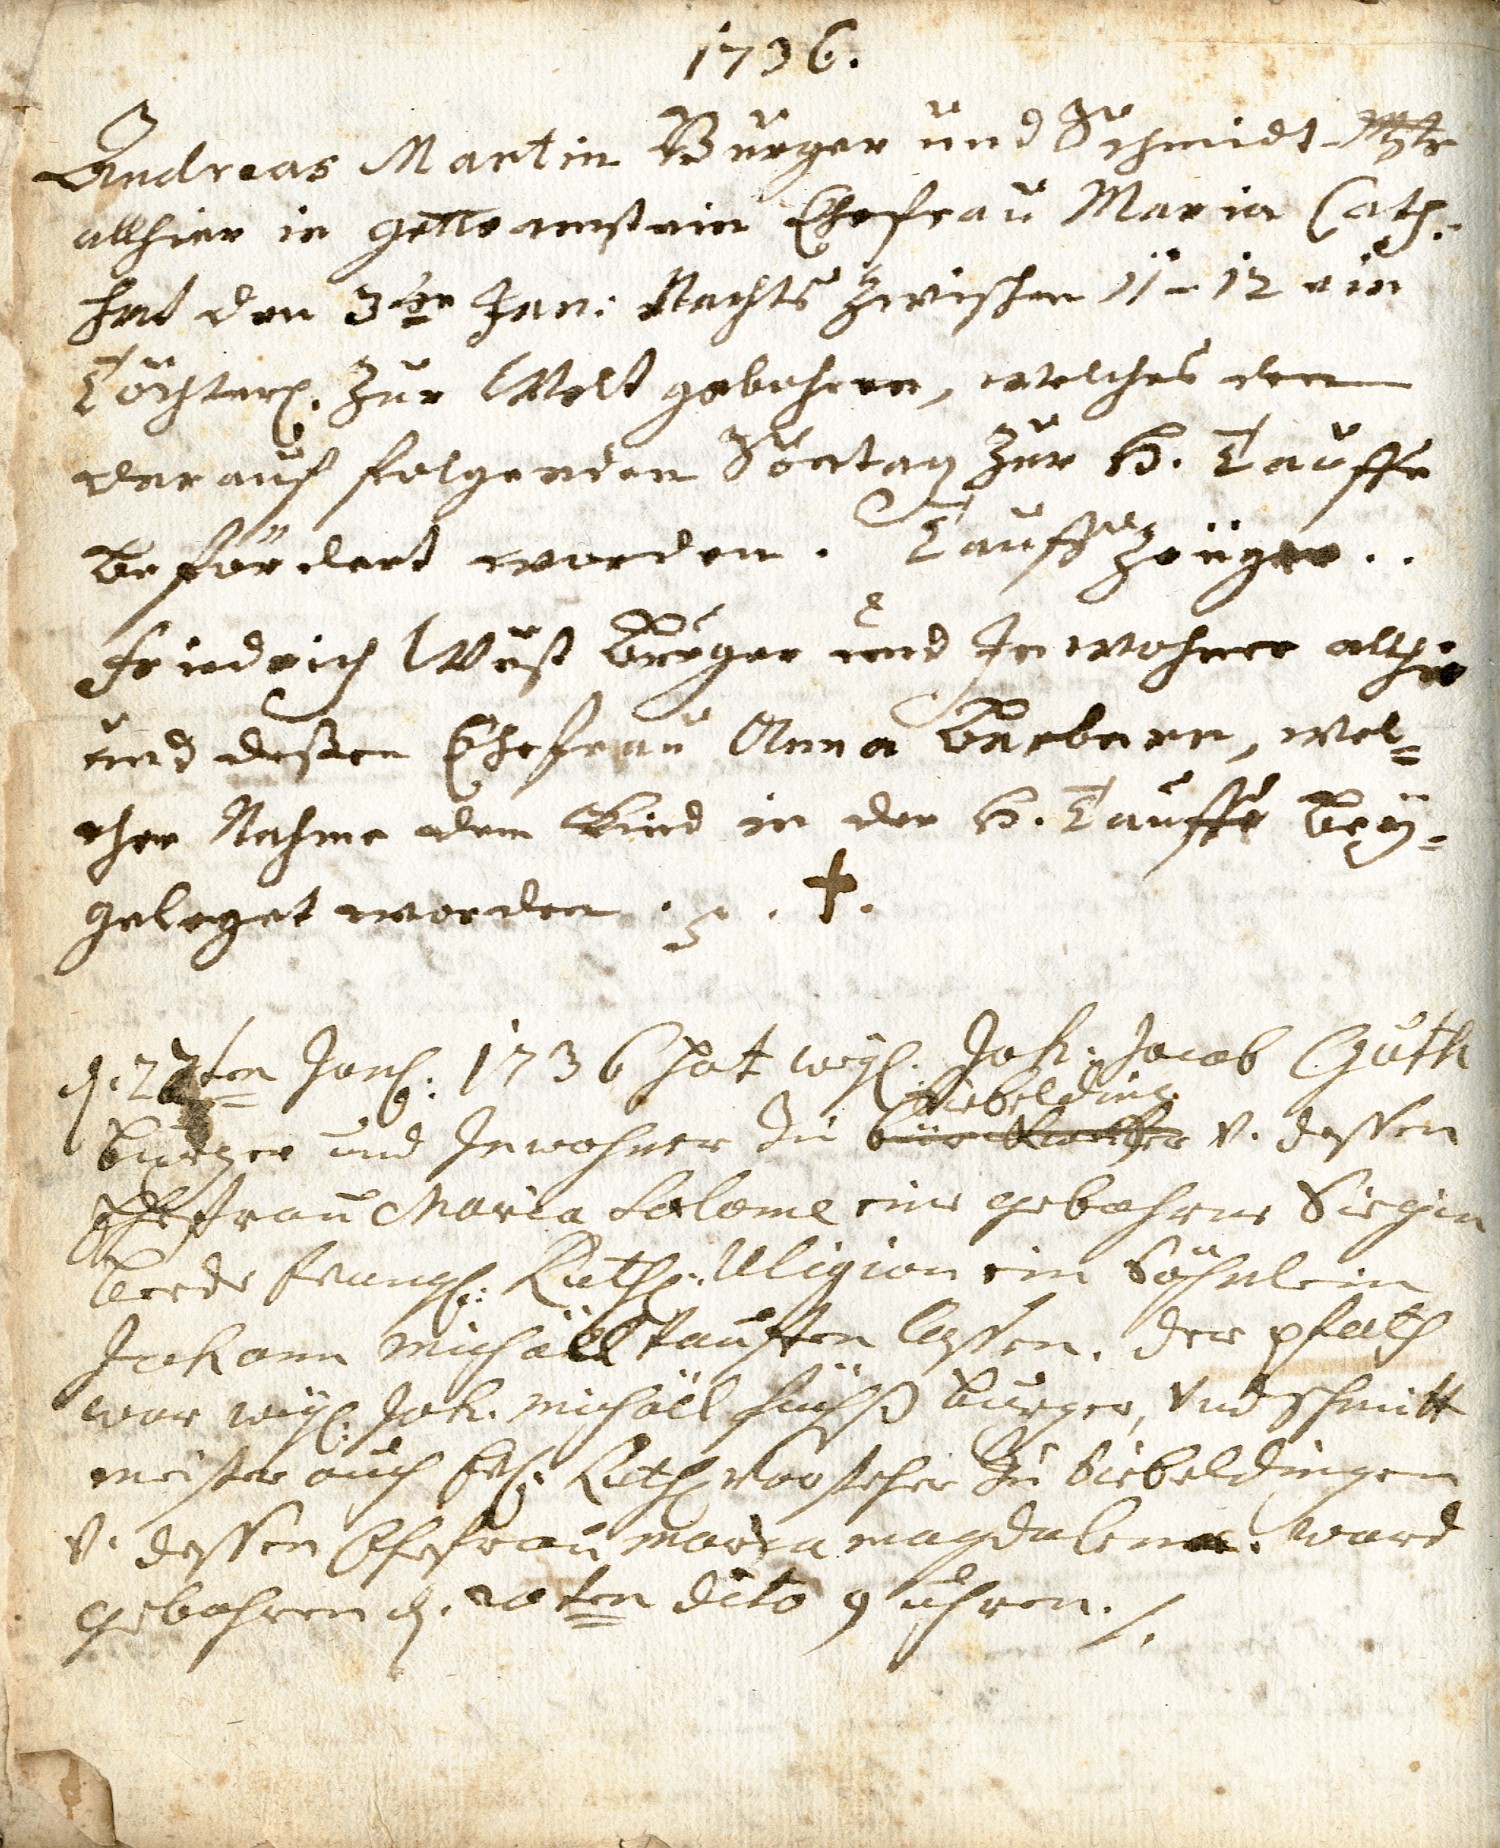 1736.
Andreas Martin Burger und Schmidt Mstr
allhier in Ehefrau Maria Cath.
hat den 3ten Jan: Nachts zwischen 11-12 ein
Töchterl. zur Welt gebohren, welches den
darauf folgenden Sontag zur H. Tauffe
befördert worden. Tauff Zeügen..
Friedrich Wüst Burger und Inwohner allhie
und deßen Ehefrau Anna Barbara, wel=
cher Nahme dem Kind in der H. Tauffe beÿ=
geleget worden . . +.
d. ten Jan: 1736 hat Joh: Jacob Guth
Siebelding
Burger und Inwohner zu v. dessen
Ehefrau Maria Salome eine gebohrne
beede Evang: Luth: Religion ein Söhnlein
Johann Michäel tauffen lassen. der pfath
war Joh. Michäel Burger, Und Schmitt
meister auch Luth vorsteher zu Siebeldingen
v. dessen Ehefrau Maria Magdalena. ward
gebohren d. 20ten dito 9 uhren. /.